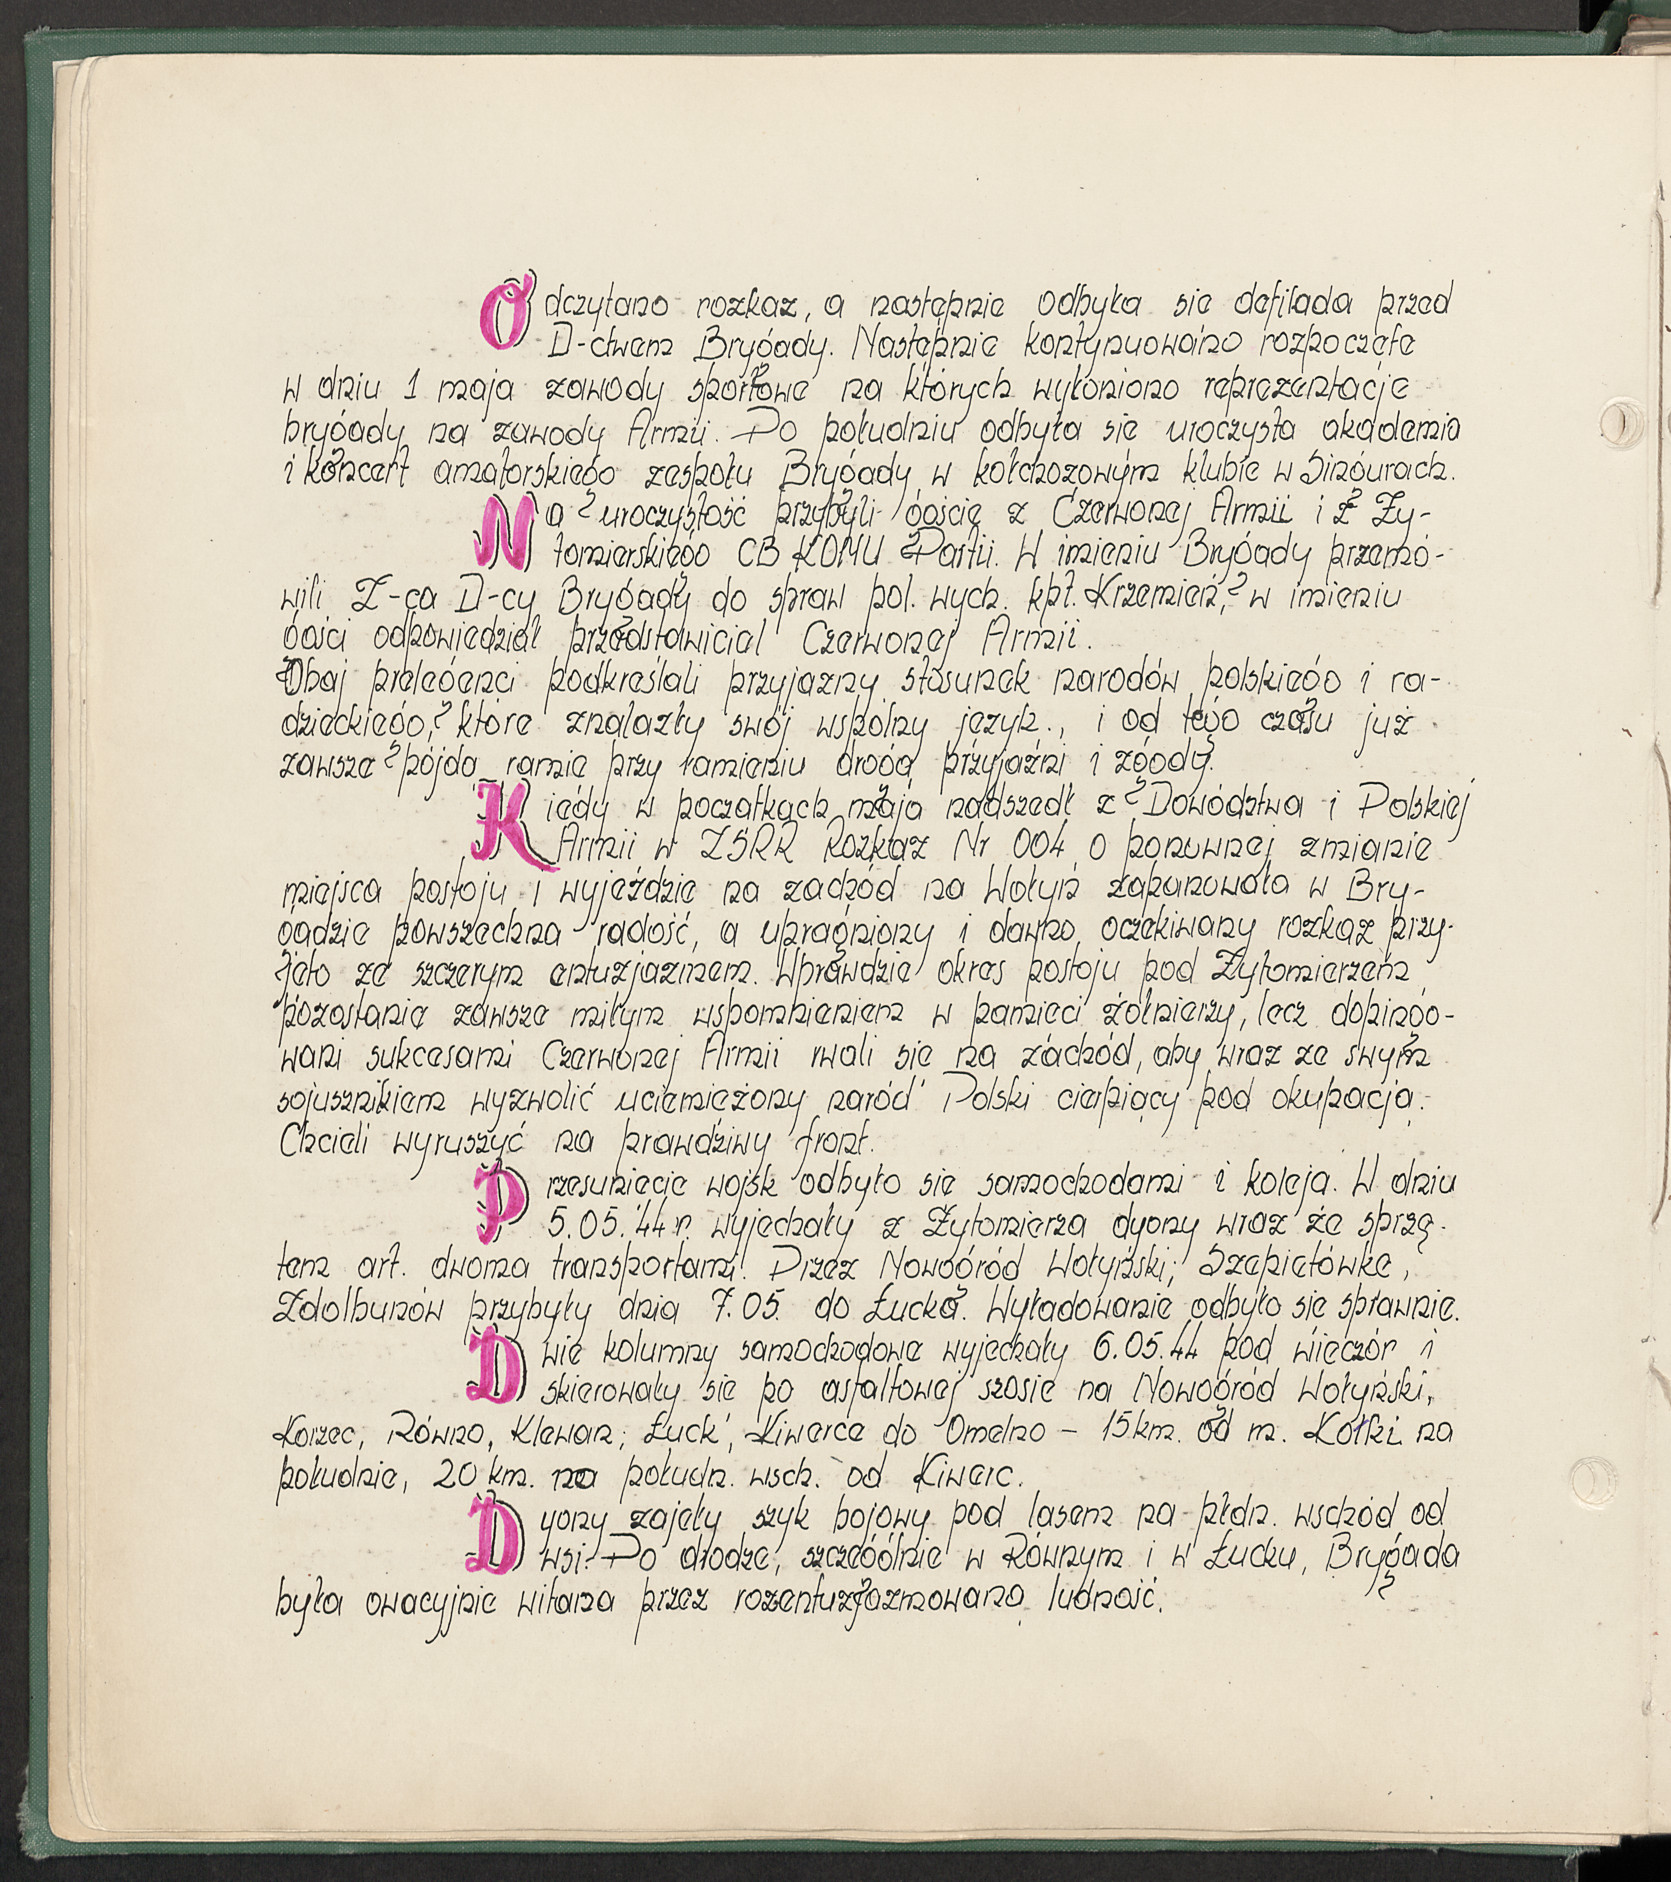 Odczytano rozkaz, a następnie odbyła się defilada przed
D-ctwem Brygady. Następnie kontynuowano rozpoczęte
w dniu 1 maja zawody sportowe na których wyłoniono reprezentację
brygady na zawody Armii. Po południu odbyła się uroczysta akademia
i koncert amatorskiego zespołu Brygady w kołchozowym klubie w Singurach.
Na uroczystość przybyli goście z Czerwonej Armii i z Ży-
tomierskiego CB KOMU Partii. W imieniu Brygady przemó-
wili Z-ca D-cy Brygady do spraw pol. wych. kpt. Krzemień, w imieniu
gości odpowiedział przedstawiciel Czerwonej Armii.
Obaj prelegenci podkreślali przyjazny stosunek narodów polskiego i ra-
dzieckiego, które znalazły swój wspólny język., i od tego czasu już
zawsze pójdą ramię przy ramieniu drogą przyjaźni i zgody.
Kiedy w początkach maja nadszedł z Dowództwa i Polskiej
Armii w ZSRR Rozkaz Nr 004 o ponownej zmianie
miejsca postoju i wyjeździe na zachód na Wołyń zapanowała w Bry-
gadzie powszechna radość, a upragniony i dawno oczekiwany rozkaz przy-
jęto ze szczerym entuzjazmem. Wprawdzie okres postoju pod Żytomierzem
pozostanie zawsze miłym wspomnieniem w pamięci żołnierzy, lecz dopingo-
wani sukcesami Czerwonej Armii rwali się na zachód, aby wraz ze swym
sojusznikiem wyzwolić uciemiężony naród Polski cierpiący pod okupacją.
Chcieli wyruszyć na prawdziwy front.
Przesunięcie wojsk odbyło się samochodami i koleją. W dniu
5.05.'44 r. wyjechały z Żytomierza dyony wraz ze sprzę-
tem art. dwoma transportami. Przez Nowogród Wołyński, Szepietówkę,
Zdołbunów przybyły dnia 7.05. do Łucka. Wyładowanie odbyło się sprawnie.
Dwie kolumny samochodowe wyjechały 6.05.44 pod wieczór i
skierowały się po asfaltowej szosie na Nowogród Wołyński,
Korzec, Równo, Klewan, Łuck, Kiwerce do Omelno – 15 km. od m. Kołki na
południe, 20 km. na połudn. wsch. od Kiwerc.
Dyony zajęły szyk bojowy pod lasem na płdn. wschód od
wsi. Po drodze, szczególnie w Równym i w Łucku, Brygada
była owacyjnie witana przez rozentuzjazmowaną ludność.